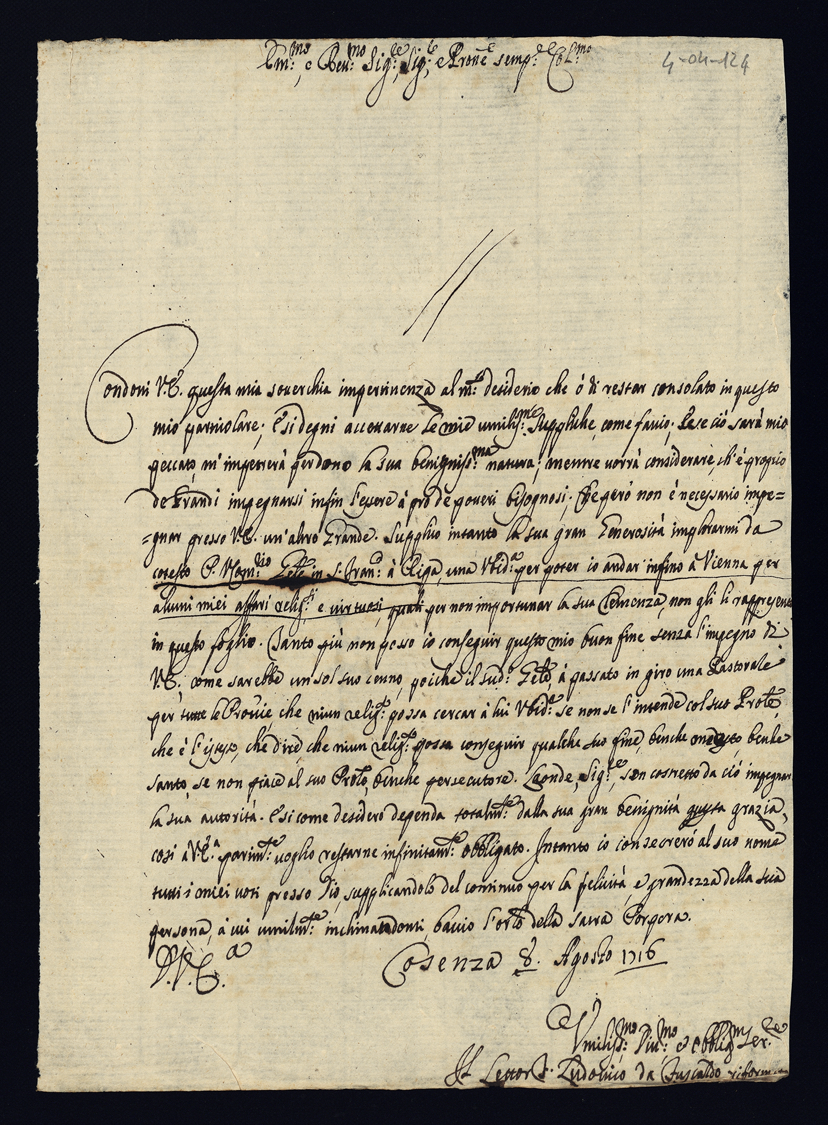 Em.mo e Reu.mo Sig.re Sig.re e Prone semp.e Col.mo
4-04-124
Condoni V.E. questa mia souerchia impertinenza al m.o desiderio che ò di restar consolato in questo
mio particolare; E si degni accettarne le mie umiliss.me Suppliche, come faccio; Se se ciò sarà mio
peccato, m'impetrerà perdono la sua benigniss.ma natura; mentre uorrà considerare, ch'è proprio
de Grandi impegnarsi infin l'essere à prò de poueri bisognosi; Che però non è necessario impe=
=gnar presso V.E. un'altro Grande. Supplico intanto la sua gran Generosità impetrarmi da
cotesto P. Gñle in S. Fran.co à Ripa, una Vbid.a per poter io andar infino à Vienna per
alcuni miei affari relig.i e virtuosi, quali per non importunar la sua Clemenza, non gli li rappresento
in questo foglio. Tanto più non posso io conseguir questo mio buon fine senza l'impegno di
V.E., come sarebbe un sol suo cenno, poiche il sud.o Gñle, à passato in giro una Pastorale
per tutte le Prouie, che niun relig.o possa cercar à lui Vbid.a se non se l'intende col suo Prole,
che è l'istesso, che dire, che niun relig.o possa conseguir qualche suo fine, benche onesto, benche
santo, se non piace al suo Prole, benche persecutore. Laonde, Sig.re, son costretto da ciò impegnar
la sua autorità. E si come desidero dependa totalm.te dalla sua gran benignità questa grazia,
così à V.E.a parim.te uoglio restarne infinitam.te obbligato. Intanto io consecrerò al suo nome
tutti i miei uoti presso Dio, supplicandolo del continuo per la felicità, e grandezza della sua
persona, à cui umilm.te inchinandomi, bacio l'orlo della sacra Porpora.
D.V.E.a
Cosenza 8. Agosto 1716
Vmiliss.mo Diu.mo et Obblig.mo Ser.re
Il Lettor F. Ludouico da Fuscaldo riform